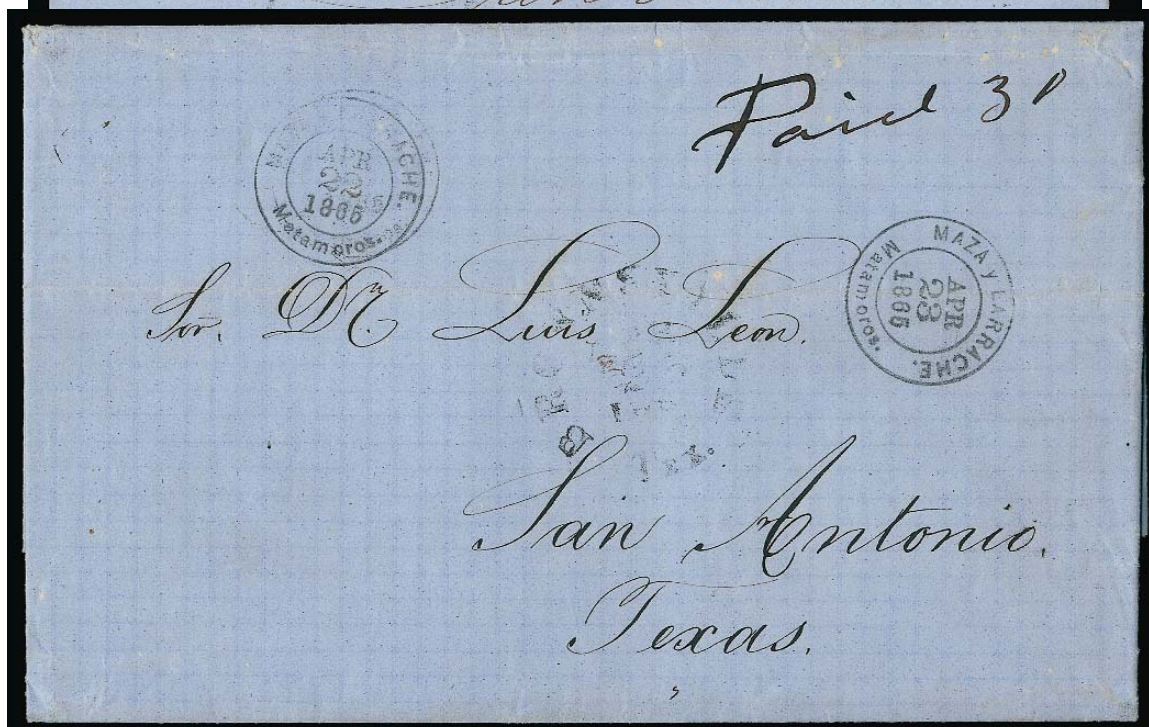 Paid 30
MAZA Y LARRACHE.
APR
22
1865
Matamoros.
MAZA Y LARRACHE.
APR
23
1865
Matamoros.
Sor. Dn. Luis Leon.
BROWNSVILLE
Tex.
San Antonio.
Texas.